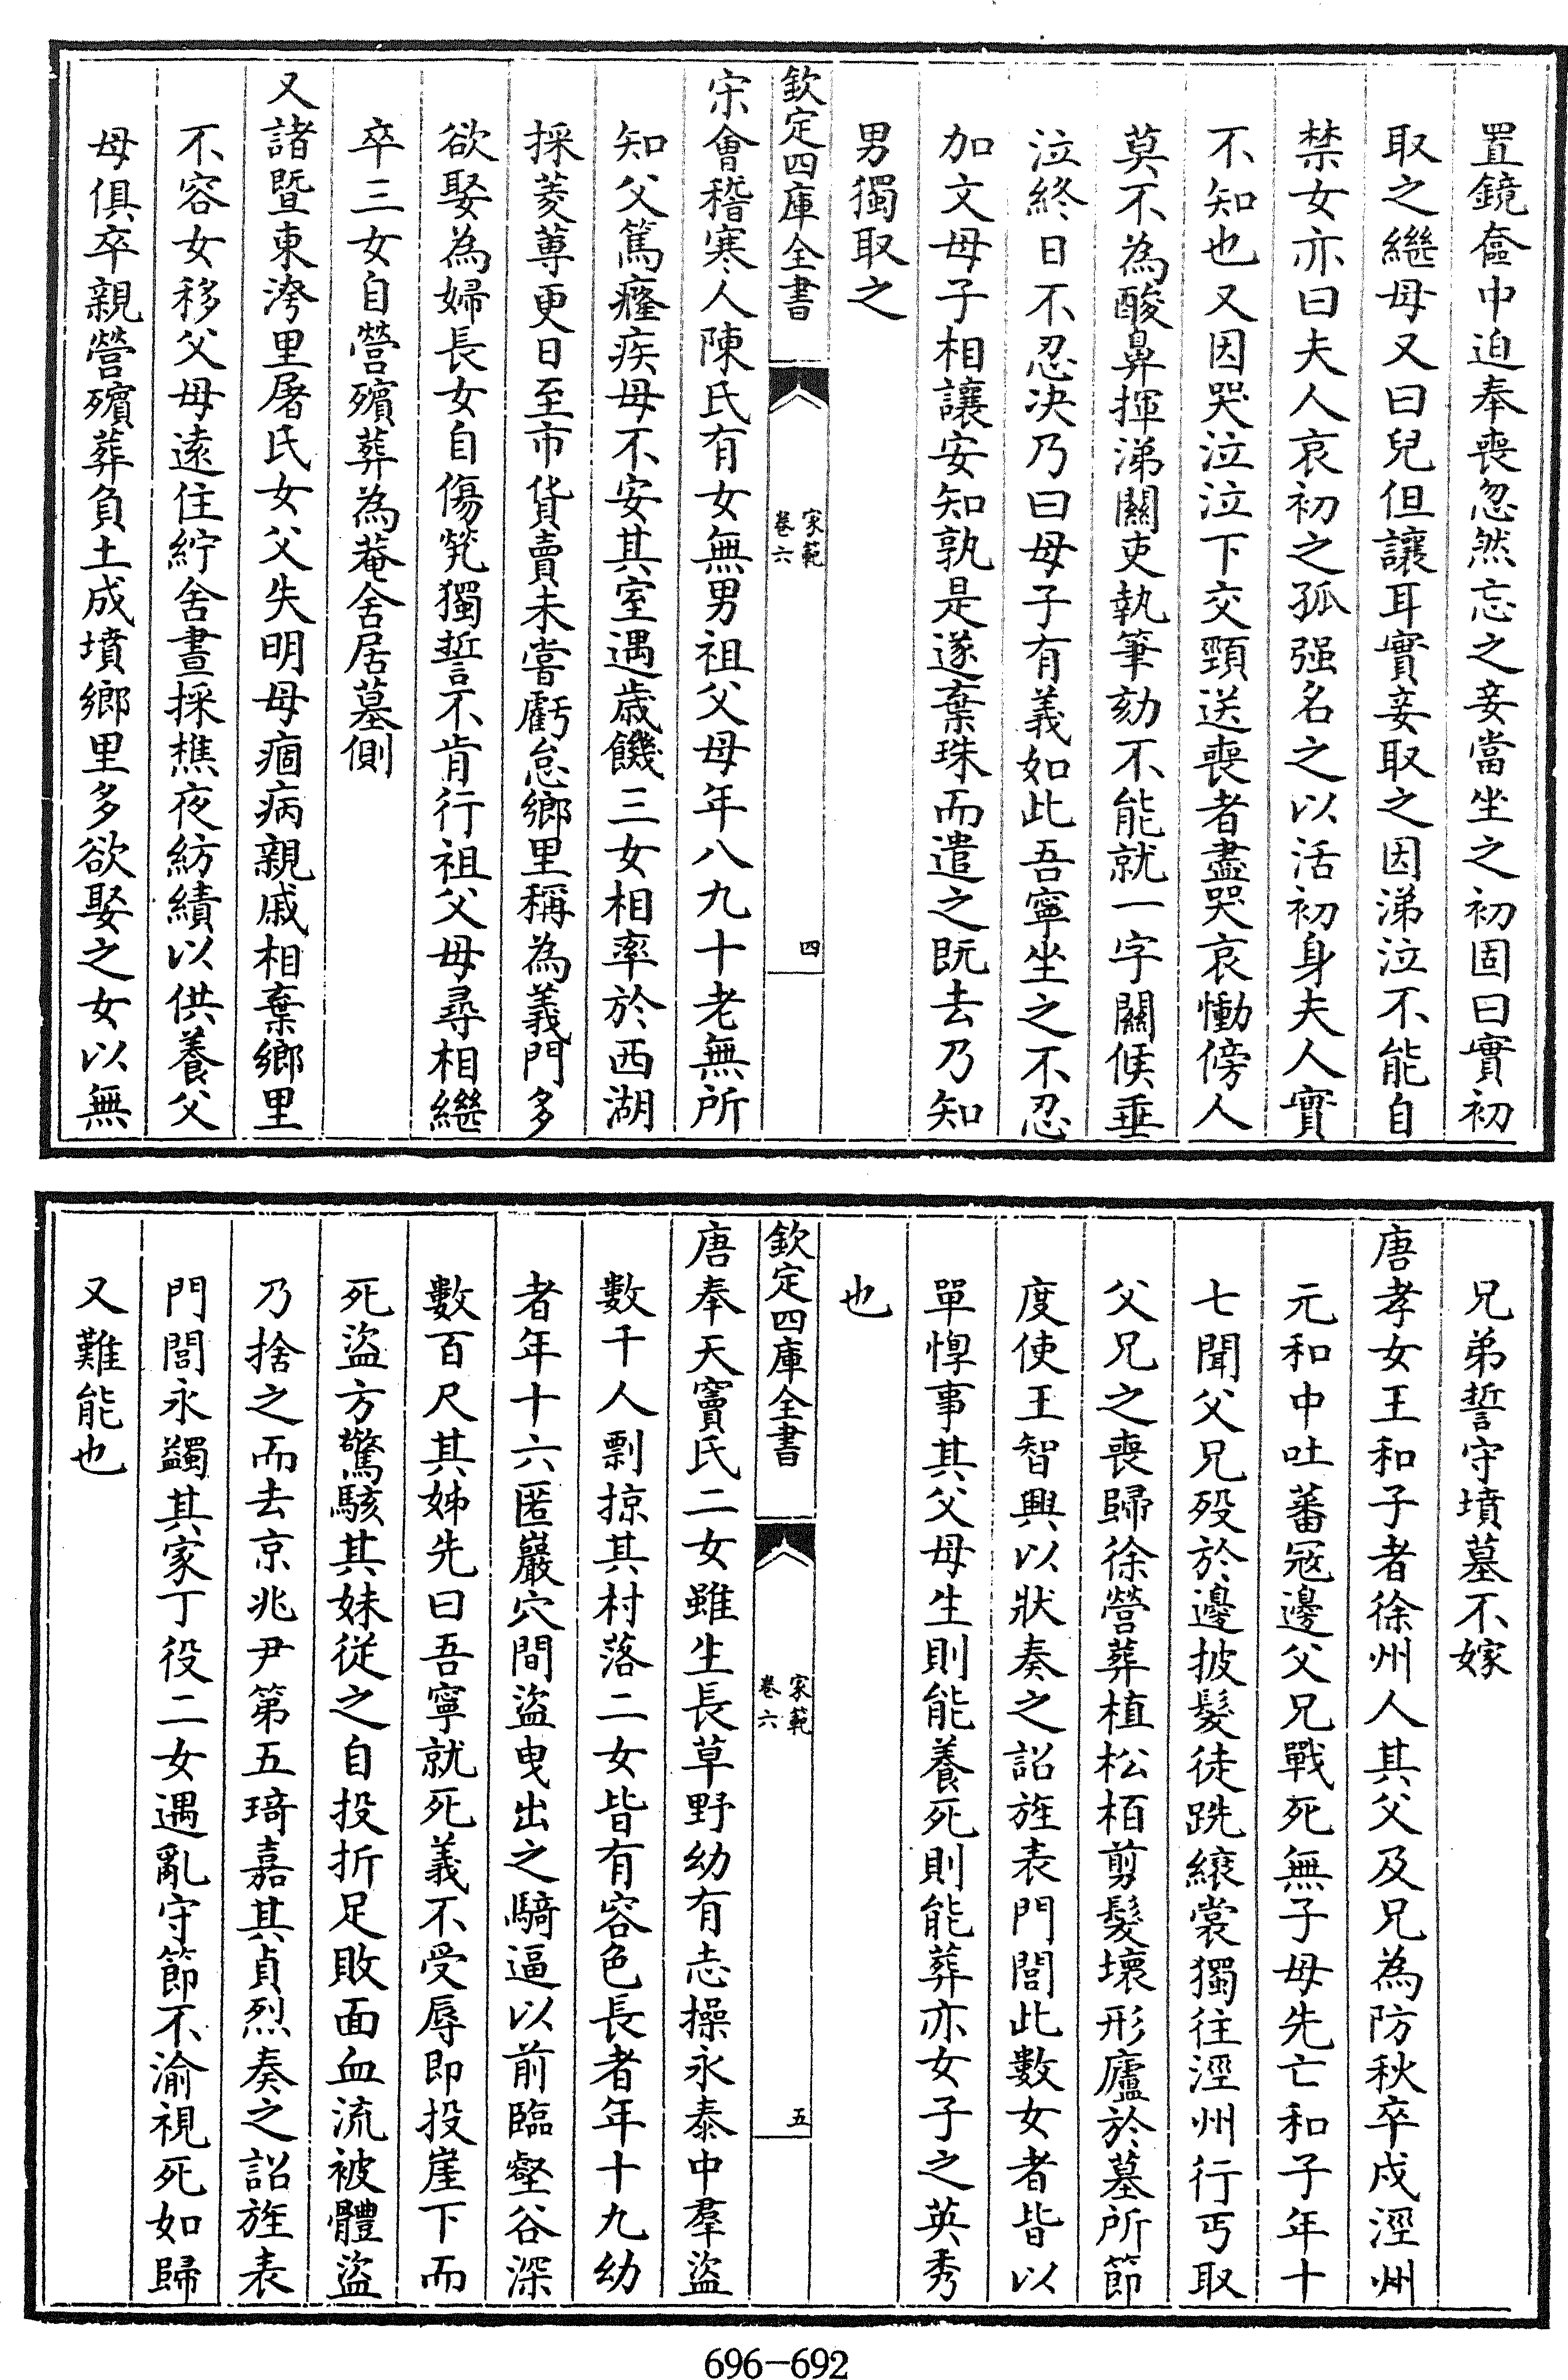 置鏡奩中迫奉喪忽然忘之妾當坐之初固曰實初
取之繼母又曰兒但讓耳實妾取之因涕泣不能自
禁女亦曰夫人哀初之孤强名之以活初身夫人實
不知也又因哭泣泣下交頸送喪者盡哭哀慟傍人
莫不為酸鼻揮涕關吏執筆劾不能就一字關候垂
泣終日不忍决乃曰母子有義如此吾寧坐之不忍
加文母子相讓安知孰是遂棄珠而遣之既去乃知
男獨取之
欽定四庫全書
家範
卷六
四
宋會稽寒人陳氏有女無男祖父母年八九十老無所
知父篤癃疾母不安其室遇歲饑三女相率於西湖
採菱蓴更日至市貨賣未嘗虧怠鄉里稱為義門多
欲娶為婦長女自傷煢獨誓不肯行祖父母尋相繼
卒三女自營殯葬為菴舍居墓側
又諸暨東洿里屠氏女父失明母痼病親戚相棄鄉里
不容女移父母遠住紵舍晝採樵夜紡績以供養父
母俱卒親營殯葬負土成墳鄉里多欲娶之女以無
兄弟誓守墳墓不嫁
唐孝女王和子者徐州人其父及兄為防秋卒戍涇州
元和中吐蕃冦邊父兄戰死無子母先亡和子年十
七聞父兄歿於邊披髮徒跣縗裳獨往涇州行丐取
父兄之喪歸徐營葬植松栢剪髮壞形廬於墓所節
度使王智興以狀奏之詔旌表門閭此數女者皆以
單惸事其父母生則能養死則能葬亦女子之英秀
也
欽定四庫全書
家範
卷六
五
唐奉天竇氏二女雖生長草野幼有志操永泰中羣盜
數千人剽掠其村落二女皆有容色長者年十九幼
者年十六匿巖穴間盜曳出之騎逼以前臨壑谷深
數百尺其姊先曰吾寧就死義不受辱即投崖下而
死盜方驚駭其妹從之自投折足敗面血流被體盜
乃捨之而去京兆尹第五琦嘉其貞烈奏之詔旌表
門閭永蠲其家丁役二女遇亂守節不渝視死如歸
又難能也
696-692